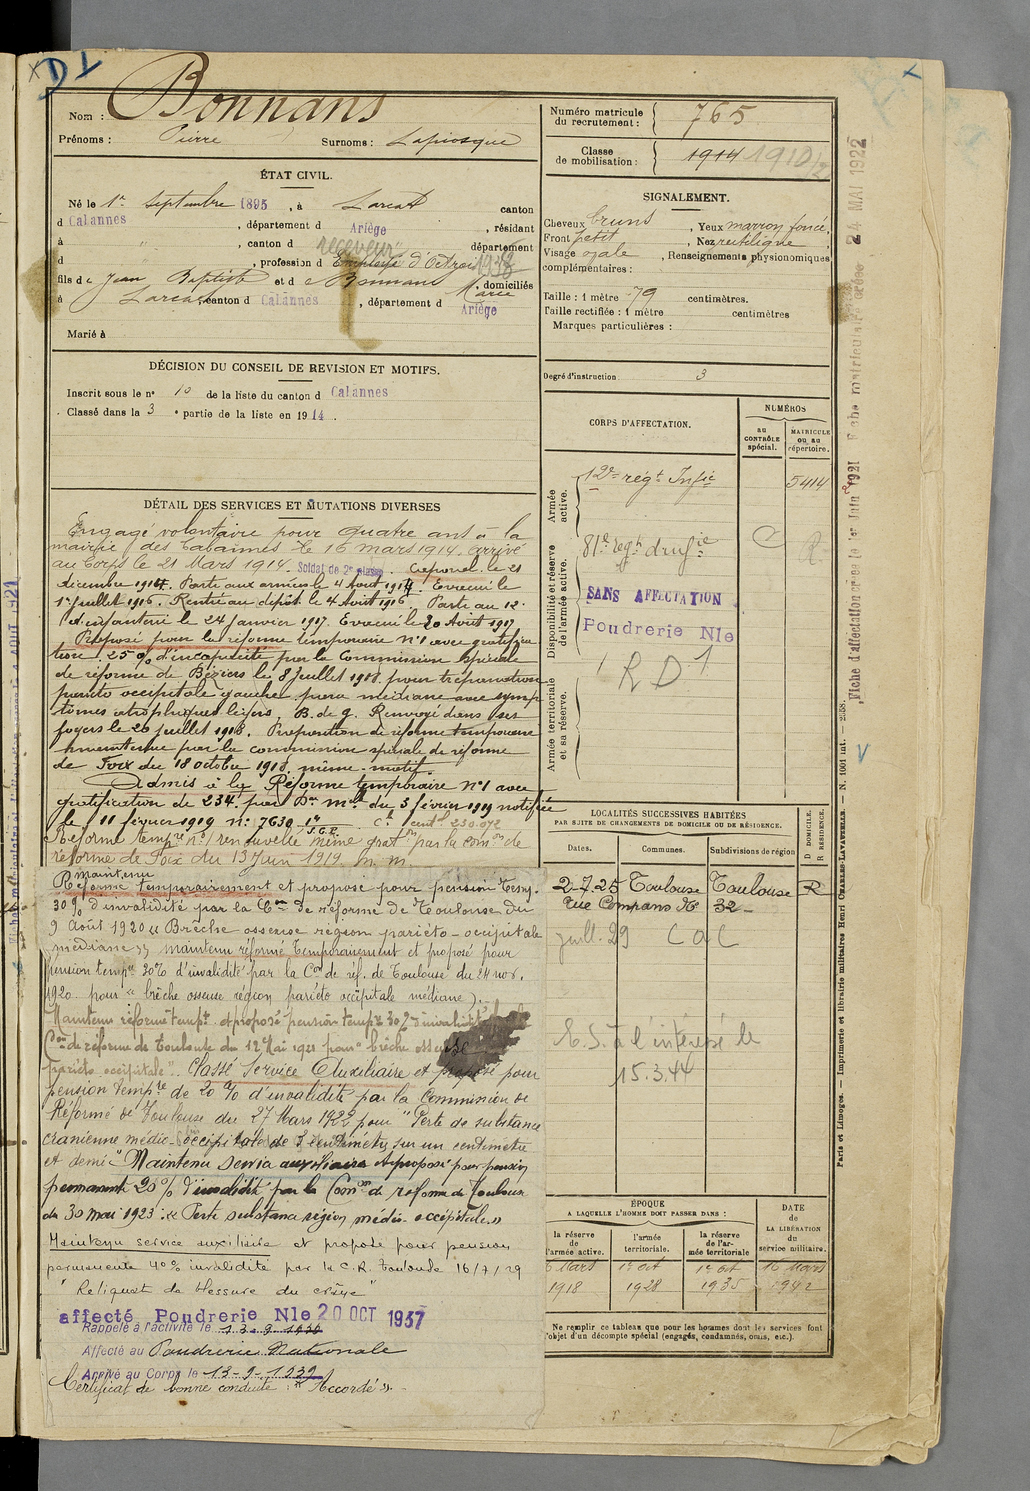 D1
Nom : Bonnans
Prénoms : Pierre Surnoms : Lapiosque
Numéro matricule du recrutement : 765
Classe de mobilisation : 1914 1910/2
ÉTAT CIVIL.
Né le 1er Septembre 1895, à Larcat canton
d Cabannes, département d Ariège, résidant
à " , canton d " département
d , profession d Employé d'Octroi receveur 1938
fils de Jean Baptiste et de Bonnans Marie, domiciliés
à Larcat canton d Cabannes, département d Ariège
Marié à
SIGNALEMENT.
Cheveux bruns, Yeux marron foncé,
Front petit, Nez rectiligne,
Visage ovale, Renseignements physionomiques
complémentaires :
Taille : 1 mètre 79 centimètres.
Taille rectifiée : 1 mètre centimètres
Marques particulières :
Degré d'instruction 3
DÉCISION DU CONSEIL DE REVISION ET MOTIFS.
Inscrit sous le n° 10 de la liste du canton d Cabannes
Classé dans la 3e partie de la liste en 1914.
DÉTAIL DES SERVICES ET MUTATIONS DIVERSES
Engagé volontaire pour quatre ans à la
mairie des Cabannes le 16 mars 1914. arrivé
au Corps le 21 Mars 1914. Soldat de 2e classe. Caporal le 21
décembre 1914. Parti aux armées le 4 Août 1914. Evacué le
1er Juillet 1916. Rentré au dépôt le 4 Août 1916. Parti au 12e
d'infanterie le 24 janvier 1917. Evacué le 20 Août 1917
Proposé pour la réforme temporaire n°1 avec gratifica
tion 25% d'incapacité par la Commission Spéciale
de réforme de Béziers le 8 Juillet 1918 pour trépanation
pariéto occipitale gauche para médiane avec symp
tômes atrophiques légers. B. de g. Renvoyé dans ses
foyers le 20 juillet 1918. Proposition de réforme temporaire
maintenue par la commission spéciale de réforme
de Foix du 18 octobre 1918, même motif.
Admis à la Réforme temporaire N°1 avec
gratification de 234f par Dn mlle du 3 février 1919 notifiée
le 11 février 1919 n° 7630
Réforme tempre n°1 renouvelée même grat° par la comon de
réforme de Foix du 13 Juin 1919. m. m.
maintenu
Réformé temporairement et proposé pour pension Temp.
30% d'invalidité par la Con de réforme de Toulouse du
9 Août 1920 « Brèche osseuse région pariéto-occipitale
médiane » maintenu réformé temporairement et proposé pour
pension tempre 30% d'invalidité par la Con de réf. de Toulouse du 24 nov.
1920 pour « brèche osseuse région pariéto occipitale médiane ».
Maintenu réformé tempt et proposé pension tempre 30% d'invalidité
Con de réforme de Toulouse du 12 Mai 1921 pour brèche osseuse
pariéto occipitale. Classé Service Auxiliaire et proposé pour
pension tempre de 20% d'invalidité par la Commission de
Réforme de Toulouse du 27 Mars 1922 pour "Perte de substance
cranienne médio-occipitale de 3 centimètres sur un centimètre
et demi" Maintenu Service auxiliaire et proposé pour pension
permanente 20% d'invalidité par la Comon de réforme de Toulouse
du 30 mai 1923 : « Perte substance région médio-occipitale »
Maintenu service auxiliaire et proposé pour pension
permanente 40% invalidité par la C.R. Toulouse 16/7/29
"Reliquat de blessure du crâne"
affecté Poudrerie Nle 20 OCT 1937
Rappelé à l'activité le 13-9-1939
Affecté au Poudrerie Nationale
Arrivé au Corps le 13-9-1939
Certificat de bonne conduite : « Accordé ».
CORPS D'AFFECTATION.
NUMÉROS
au CONTRÔLE spécial.
MATRICULE ou au répertoire.
Armée active.
12e régt Infie 5414
Disponibilité et réserve de l'armée active.
81e regt d'infie C R
SANS AFFECTATION
Poudrerie Nle
1 RD 1
Armée territoriale et sa réserve.
LOCALITÉS SUCCESSIVES HABITÉES
PAR SUITE DE CHANGEMENTS DE DOMICILE OU DE RÉSIDENCE.
Dates. Communes. Subdivisions de région D DOMICILE. R RÉSIDENCE.
2-7-25 Toulouse Toulouse R
rue Compans N° 32
juill. 29 C a C
E.S. à l'intéressé le
15.3.44
ÉPOQUE
A LAQUELLE L'HOMME DOIT PASSER DANS :
la réserve de l'armée active.
l'armée territoriale.
la réserve de l'armée territoriale
DATE de LA LIBÉRATION du service militaire.
16 Mars 1918
1er oct 1928
1er oct 1935
16 Mars 1942
Ne remplir ce tableau que pour les hommes dont les services font
l'objet d'un décompte spécial (engagés, condamnés, omis, etc.).
Paris et Limoges. — Imprimerie et librairie militaires Henri CHARLES-LAVAUZELLE — N. 1001 int. — 2358.
Fiche d'affectation créée le 1er Juin 1921 Fiche matriculaire créée 24 MAI 1922